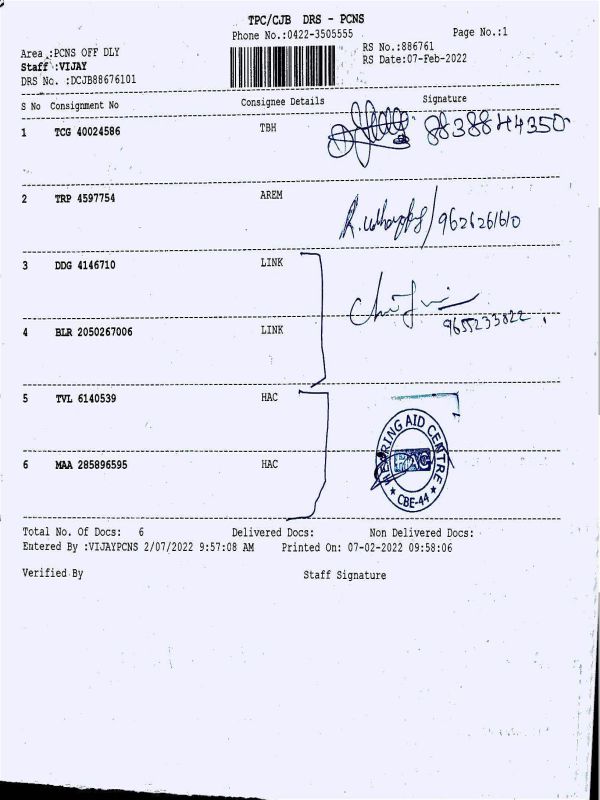 TPC/CJB DRS - PCNS
Phone No.:0422-3505555 Page No.:1
Area :PCNS OFF DLY RS No.:886761
Staff :VIJAY RS Date:07-Feb-2022
DRS No. :DCJB88676101
S No Consignment No Consignee Details Signature
1 TCG 40024586 TBH
2 TRP 4597754 AREM 9626261610
3 DDG 4146710 LINK
4 BLR 2050267006 LINK 9655233822
5 TVL 6140539 HAC
6 MAA 285896595 HAC
HEARING AID CENTRE
HAC
CBE-44
Total No. Of Docs: 6 Delivered Docs: Non Delivered Docs:
Entered By :VIJAYPCNS 2/07/2022 9:57:08 AM Printed On: 07-02-2022 09:58:06
Verified By Staff Signature